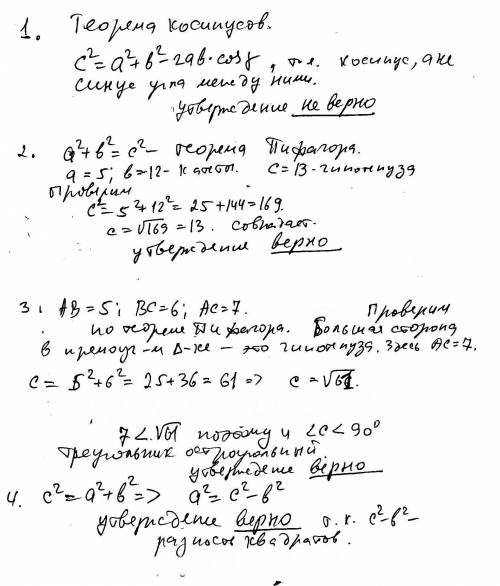 1. Теорема косинусов.
c²=a²+b²-2ab·cosγ, т.е. косинус, а не
синус угла между ними.
утверждение не верно
2. a²+b²=c²- теорема Пифагора.
a=5; b=12- катеты. c=13-гипотенуза
Проверим
c²=5²+12²=25+144=169.
c=√169=13. совпадает.
утверждение верно
3. AB=5; BC=6; AC=7. Проверим
по теореме Пифагора. Большая сторона
в прямоуг-м Δ-ке – это гипотенуза. Здесь AC=7.
c=5²+6²=25+36=61=> c=√61.
7<√61 поэтому и ∠C<90⁰
треугольник остроугольный.
утверждение верно
4. c²=a²+b²=> a²=c²-b²
утверждение верно т.к. c²-b²-
разность квадратов.